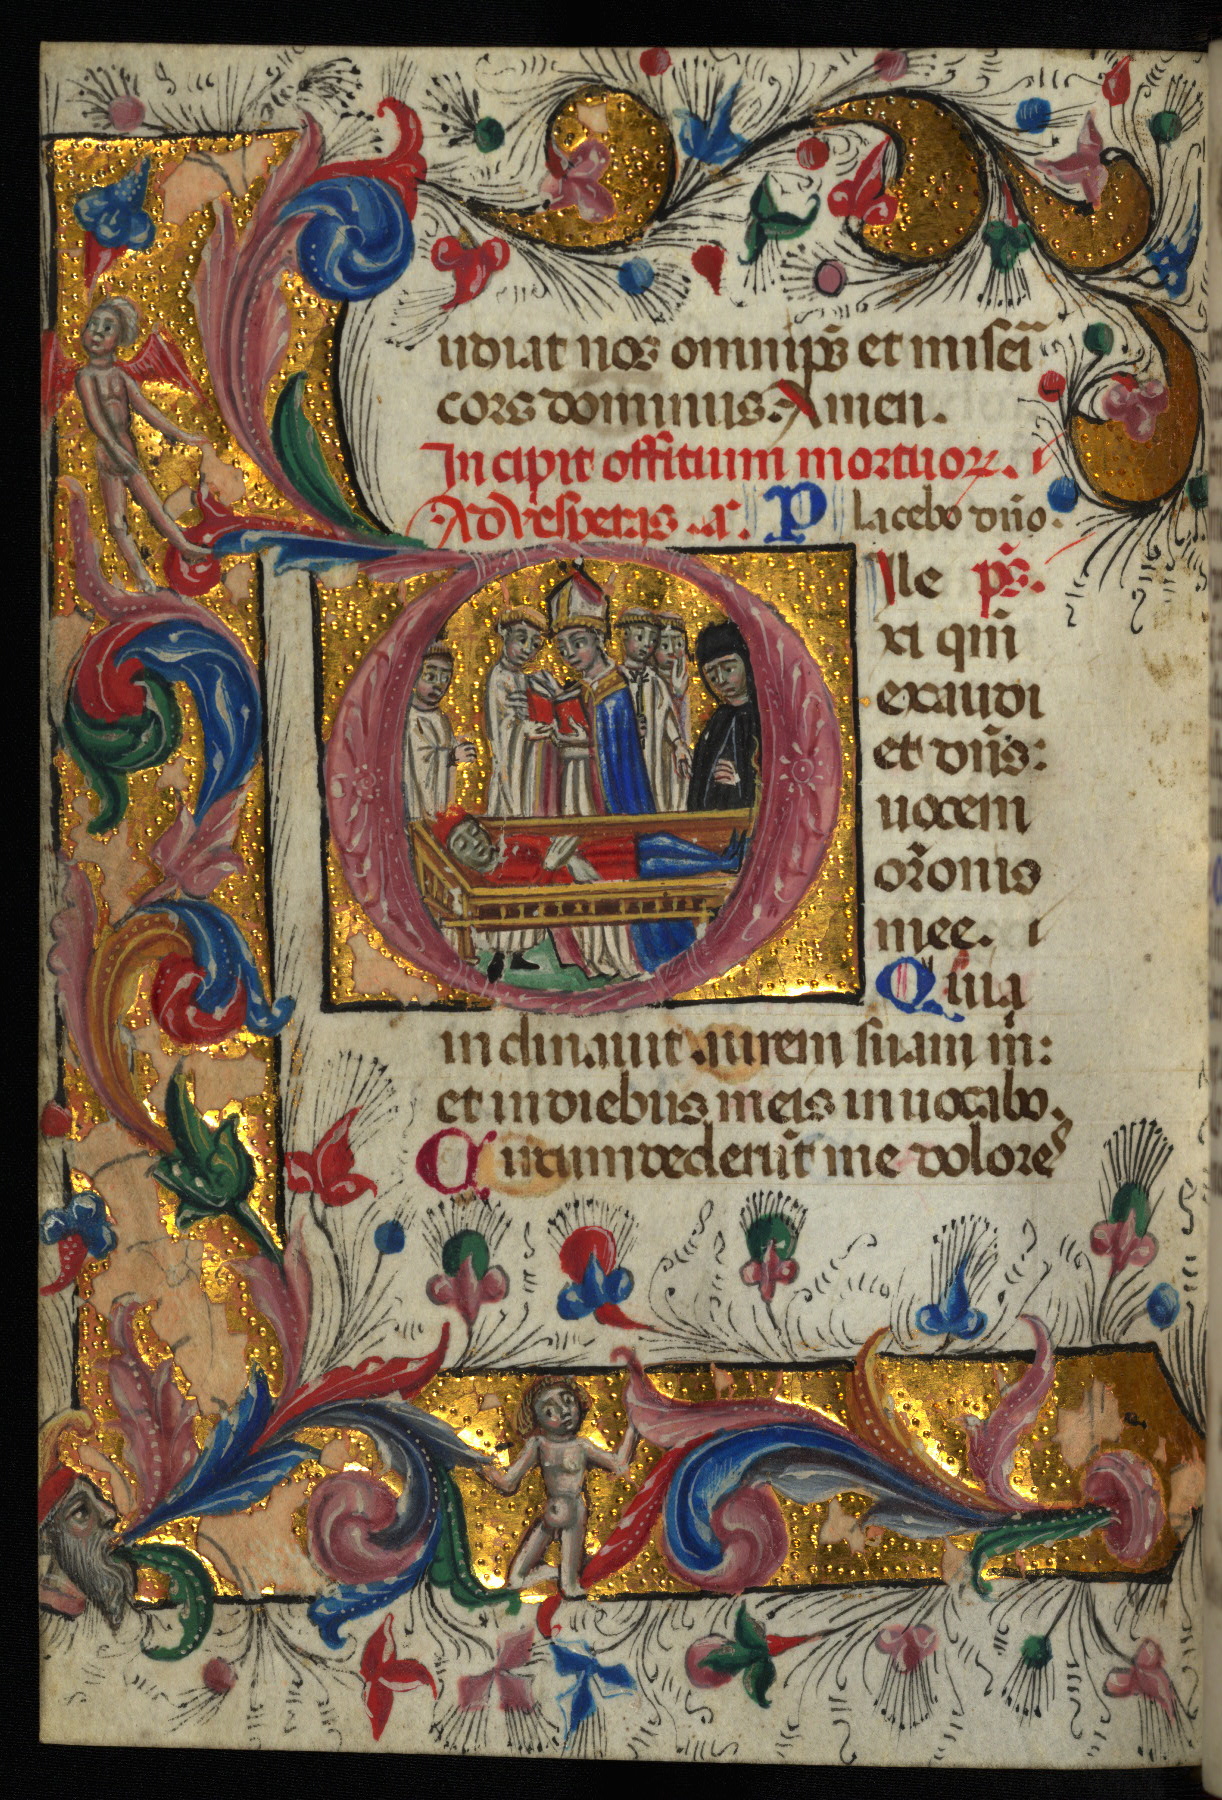 udiat nos omnip̄s et miseri
cors dominus. Amen.
Incipit offitium mortuoꝝ.
Ad vesperas .a͞. Placebo dño.
Ile p̄s.
xi qm̄
exaudi
et dñs:
uocem
or̄onis
mee.
Quia
inclinauit aurem suam m̄:
et in diebus meis inuocabo.
Circumdederūt me dolores